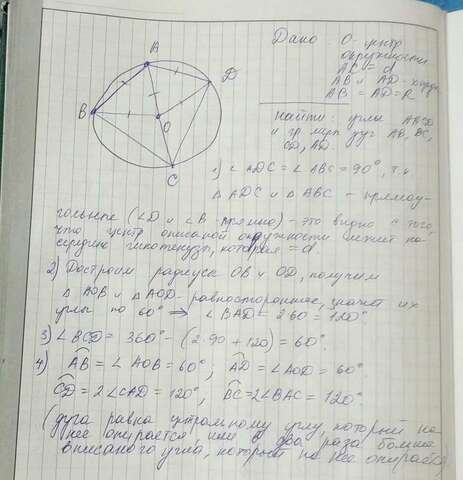 Дано: О- центр
окружности
AC = d
AB и AD- хорды
AB = AD = R
найти: углы ABCD
и гр. мер дуг AB, BC,
CD, AD.
A
D
B
O
C
1) ∠ADC = ∠ABC = 90°, т.к
△ADC и △ABC - прямоу-
гольные (∠D и ∠B - прямые) - это видно с того,
что центр описаной окружности лежит на
середине гипотенузы, которая = d.
2) Достроим радиусы OB и OD, получим
△AOB и △AOD - равносторонние, значит их
углы по 60° ⇒ ∠BAD = 2·60 = 120°
3) ∠BCD = 360° - (2·90 + 120) = 60°.
4) AB = ∠AOB = 60°; AD = ∠AOD = 60°.
CD = 2∠CAD = 120°, BC = 2∠BAC = 120°.
(дуга равна центральному углу, который на
нее опирается, или в два раза больше
вписаного угла, который на нее опирается)